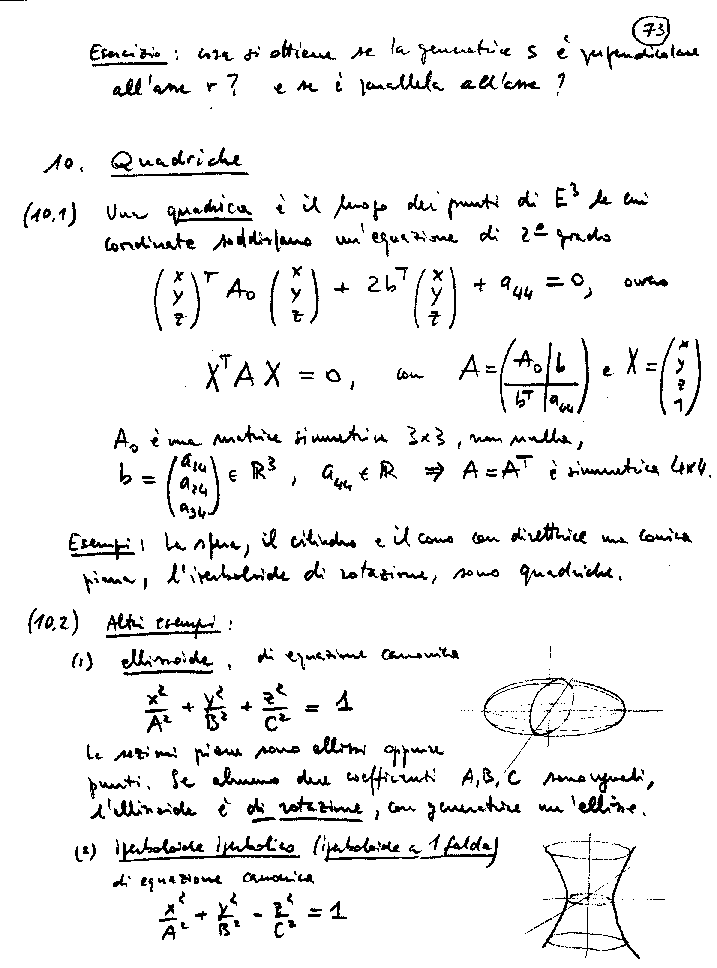 73
Esercizio: cosa si ottiene se la generatrice s è perpendicolare
all'asse r? e se è parallela all'asse?
10. Quadriche
(10.1) Una quadrica è il luogo dei punti di E³ le cui
coordinate soddisfano un'equazione di 2º grado
(x y z)ᵀ A₀ (x y z) + 2bᵀ (x y z) + a₄₄ = 0, ovvero
XᵀAX = 0, con A = (A₀ | b / bᵀ | a₄₄) e X = (x y z 1)
A₀ è una matrice simmetrica 3x3, non nulla,
b = (a₁₄ a₂₄ a₃₄) ∈ ℝ³, a₄₄ ∈ ℝ ⇒ A = Aᵀ è simmetrica 4x4.
Esempi: la sfera, il cilindro e il cono con direttrice una conica
piana, l'iperboloide di rotazione, sono quadriche.
(10.2) Altri esempi:
(1) ellissoide, di equazione canonica
x²/A² + y²/B² + z²/C² = 1
Le sezioni piane sono ellissi oppure
punti. Se almeno due coefficienti A, B, C sono uguali,
l'ellissoide è di rotazione, con generatrice un'ellisse.
(2) iperboloide iperbolico (iperboloide a 1 falda)
di equazione canonica
x²/A² + y²/B² - z²/C² = 1